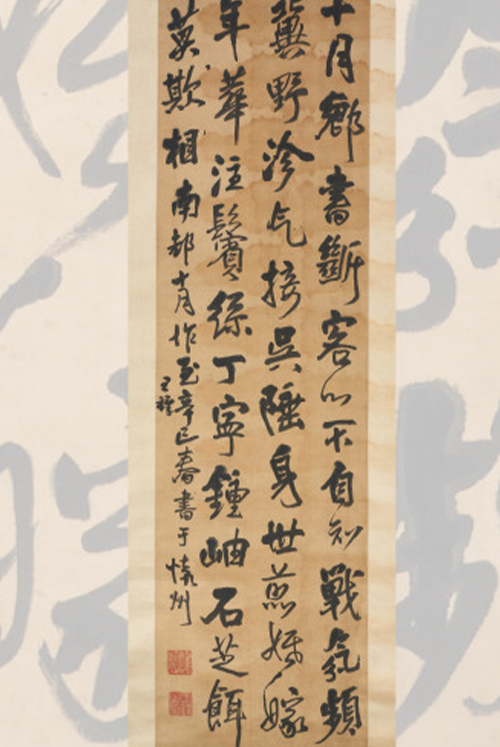 十月鄉書斷客心不自知戰氛頻
冀野沴气接吳陲身世兼婚嫁
年華注鬢絲丁寧鍾岫石芝餌
莫欺相南都十月作至辛巳春書于懷州
王鐸